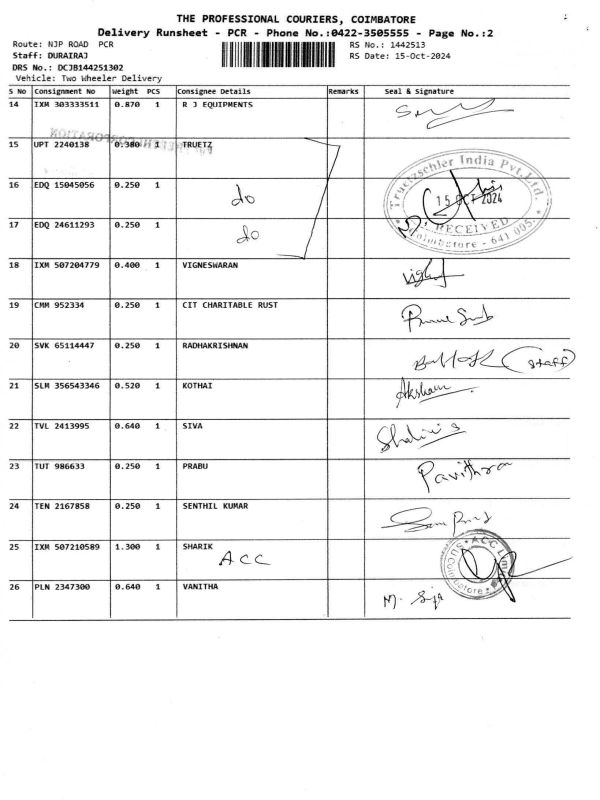 THE PROFESSIONAL COURIERS, COIMBATORE
Delivery Runsheet - PCR - Phone No.:0422-3505555 - Page No.:2
Route: NJP ROAD PCR
RS No.: 1442513
Staff: DURAIRAJ
RS Date: 15-Oct-2024
DRS No.: DCJB144251302
Vehicle: Two Wheeler Delivery
S No Consignment No Weight PCS Consignee Details Remarks Seal & Signature
14 IXM 303333511 0.870 1 R J EQUIPMENTS
15 UPT 2240138 0.380 1 TRUETZ
Truetzschler India Pvt. Ltd.
16 EDQ 15045056 0.250 1 do
15 OCT 2024
17 EDQ 24611293 0.250 1 do
RECEIVED
Coimbatore - 641 005.
18 IXM 507204779 0.400 1 VIGNESWARAN
19 CMM 952334 0.250 1 CIT CHARITABLE RUST
20 SVK 65114447 0.250 1 RADHAKRISHNAN
(staff)
21 SLM 356543346 0.520 1 KOTHAI Aksham
22 TVL 2413995 0.640 1 SIVA Shalini S
23 TUT 986633 0.250 1 PRABU Pavithra
24 TEN 2167858 0.250 1 SENTHIL KUMAR
25 IXM 507210589 1.300 1 SHARIK
ACC
26 PLN 2347300 0.640 1 VANITHA